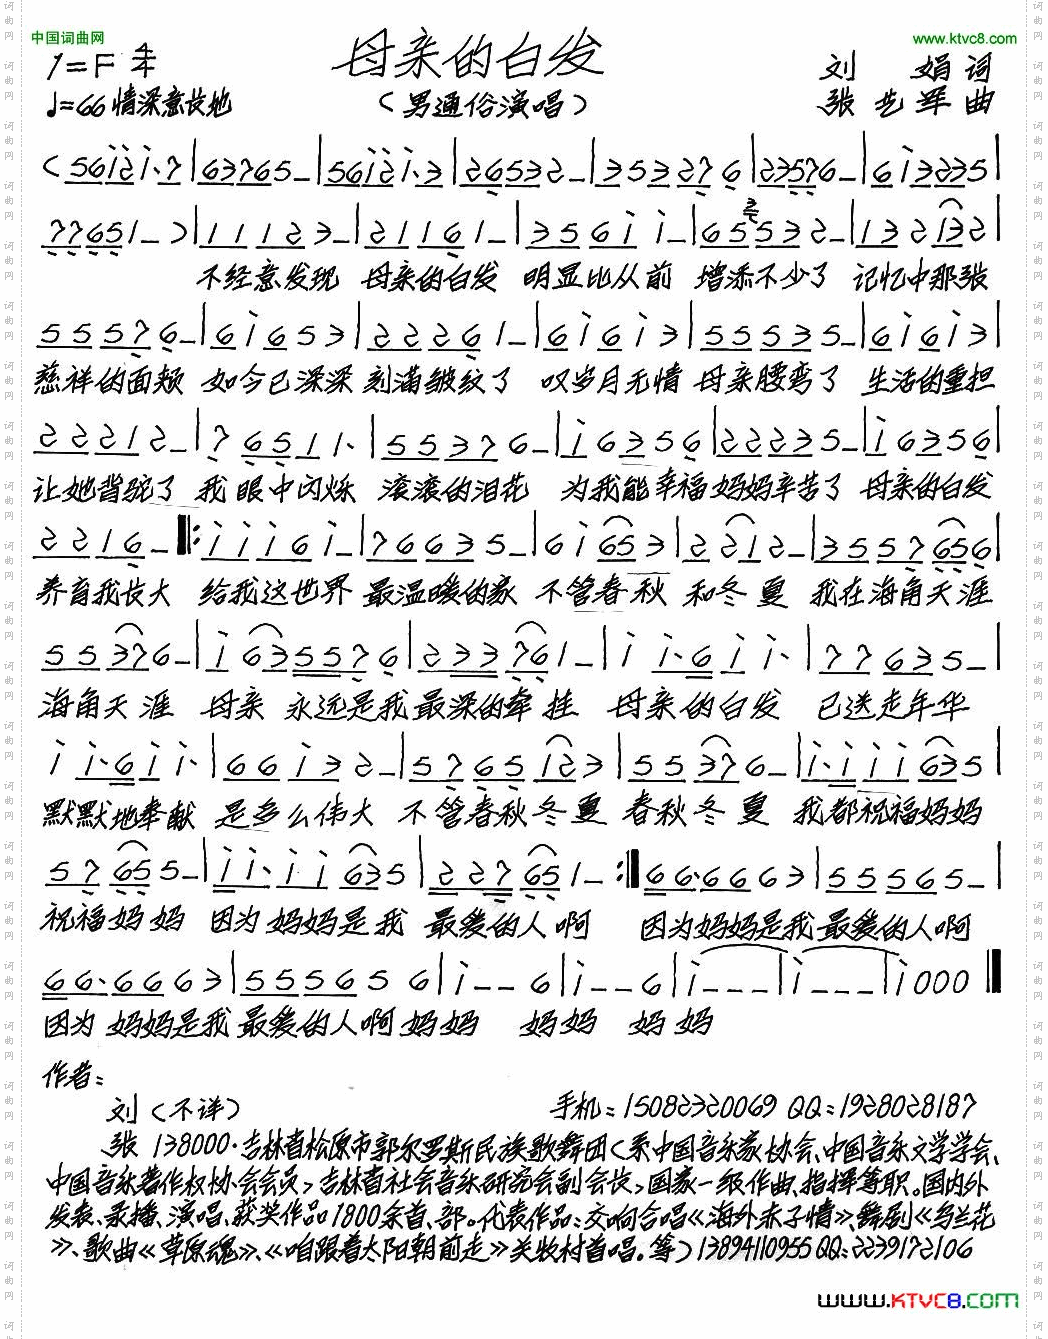 中国词曲网
www.ktvc8.com
母亲的白发
1=F 4/4
刘 娟 词
♩=66 情深意长地
（男通俗演唱）
张艺军 曲
(561̇2̇1̇·7|63765_|561̇2̇1̇·3|26532_|3532276|23576_|61̇3235|
77651_)|11123_|21161_|3561̇1̇_|655532_|132132|
不经意发现 母亲的白发 明显比从前 增添不少了 记忆中那张
55576_|61̇653|22261_|61̇61̇3|55535_|61̇61̇3|
慈祥的面颊 如今已深深刻满皱纹了 叹岁月无情 母亲腰弯了 生活的重担
22212_|76511·|55376_|1̇6356|22235_|1̇6356|
让她背驼了 我眼中闪烁 滚滚的泪花 为我能幸福 妈妈辛苦了 母亲的白发
2216_‖:1̇1̇1̇61̇_|76635_|61̇653|2212_|3557656|
养育我长大 给我这世界 最温暖的家 不管春秋 和冬夏 我在海角天涯
55376_|1̇635576|233761_|1̇1̇·61̇1̇·|77635_|
海角天涯 母亲 永远是我最深的牵挂 母亲的白发 已送走年华
1̇1̇·61̇1̇·|661̇32_|5765123|55376_|1̇·1̇1̇1̇635|
默默地奉献 是多么伟大 不管春秋冬夏 春秋冬夏 我都祝福妈妈
57655_|1̇1̇·1̇1̇635|227651_:‖66·6663|55565_|
祝福妈妈 因为妈妈是我 最爱的人啊 因为妈妈是我最爱的人啊
66·6663|555656|1̇__6|1̇__6|1̇___|1̇___|1̇000‖
因为 妈妈是我 最爱的人啊 妈妈 妈妈 妈妈
作者:
刘（不详） 手机:15082320069 QQ:1928028187
张 138000·吉林省松原市郭尔罗斯民族歌舞团（系中国音乐家协会、中国音乐文学学会、
中国音乐著作权协会会员，吉林省社会音乐研究会副会长，国家一级作曲、指挥等职。国内外
发表、录播、演唱、获奖作品1800余首、部。代表作品:交响合唱《海外赤子情》、舞剧《乌兰花
》、歌曲《草原魂》、《咱跟着太阳朝前走》关牧村首唱。等）13894110955 QQ:2239172106
www.KTVC8.com